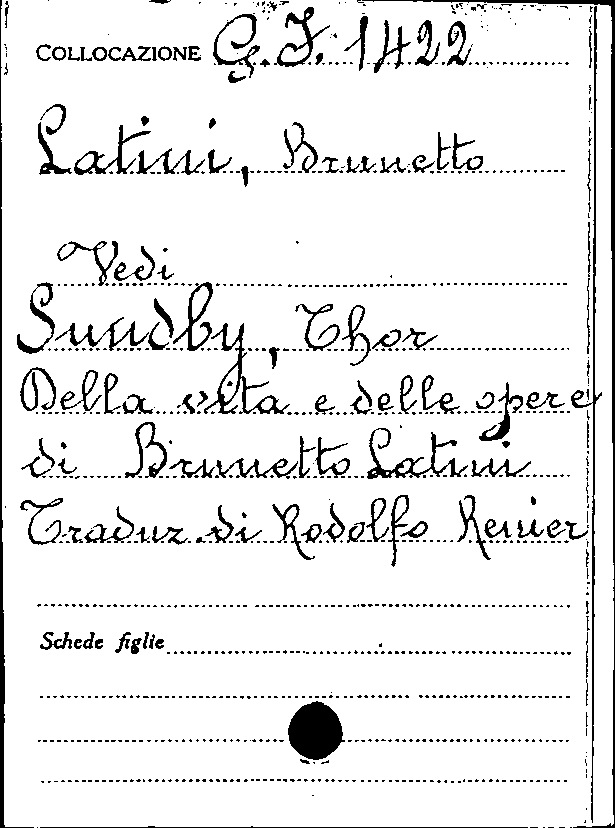 COLLOCAZIONE G. I. 1422
Latini, Brunetto
Vedi
Sundby, Thor
Della vita e delle opere
di Brunetto Latini
Traduz. di Rodolfo Renier
Schede figlie